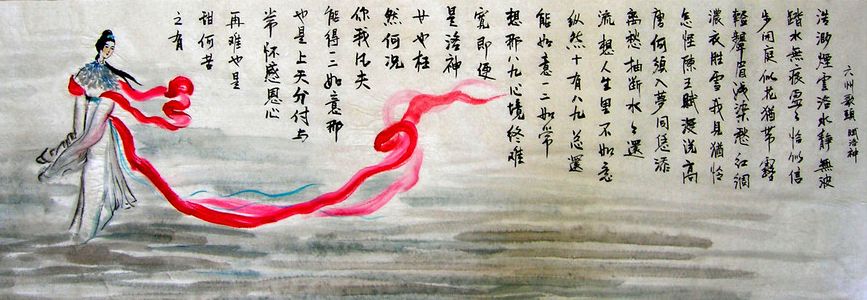 六州歌頭 賦洛神
浩渺煙雲洛水靜無波
踏水無痕恰似信
步閒庭似花猶帶露
輕顰眉淺染愁紅綢
濃衣勝雪我見猶憐
怎怪陳王賦漫說高
唐何須入夢同添
離愁抽斷水々還
流想人生里不如意
縱然十有八九總還
能如意一二如常
想那八九心境終難
寬即便
是洛神
也枉
然何況
你我凡夫
能得一二如意那
也是上天分付与
常怀感恩心
再難也是
甜何苦
之有